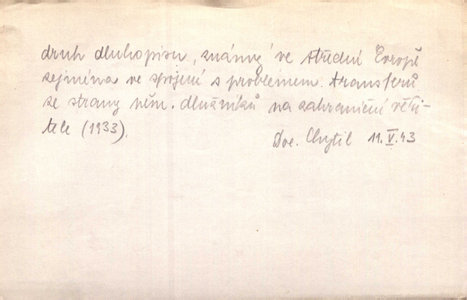 druh dluhopisu, známý ve střední Evropě
zejména ve spojení s problemem transferů
ze strany něm. dlužníků na zahraniční věři-
tele (1933).
Doc. Chytil 11.V.43